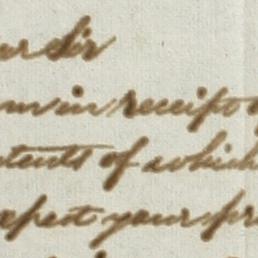 ur Sir
am in receipt o
tents of which
expect your pr